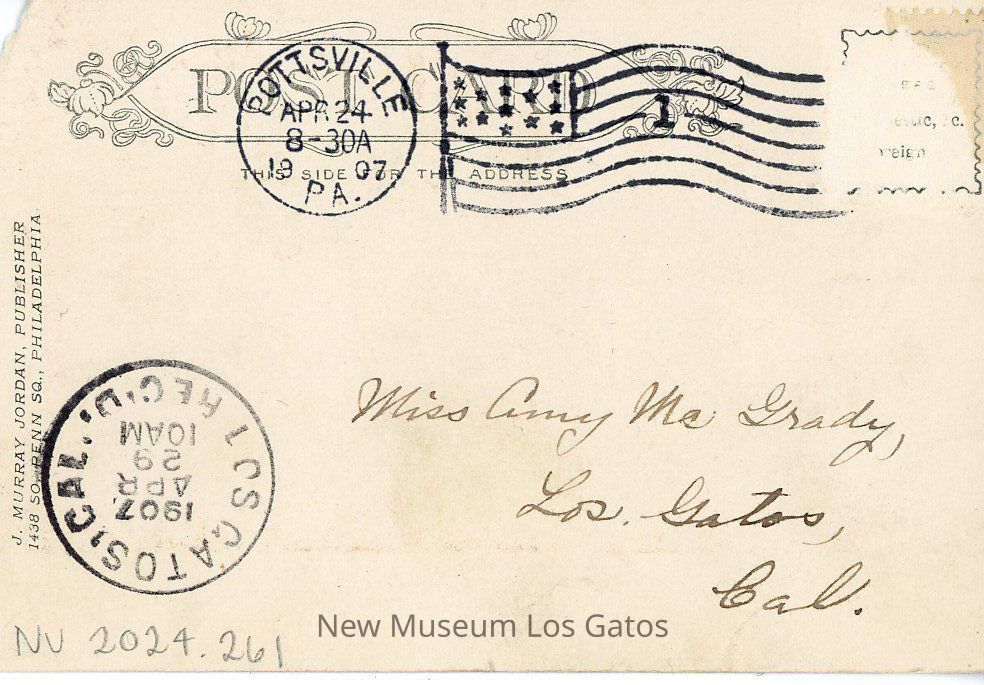 POST CARD
THIS SIDE FOR THE ADDRESS
POTTSVILLE
APR 24
8-30A
1907
PA.
1
J. MURRAY JORDAN, PUBLISHER
1438 SO. PENN SQ., PHILADELPHIA
LOS GATOS, CAL.
REC'D.
1907
APR
29
10AM
Miss Amy Mc Grady,
Los. Gatos,
Cal.
NV 2024.261
New Museum Los Gatos